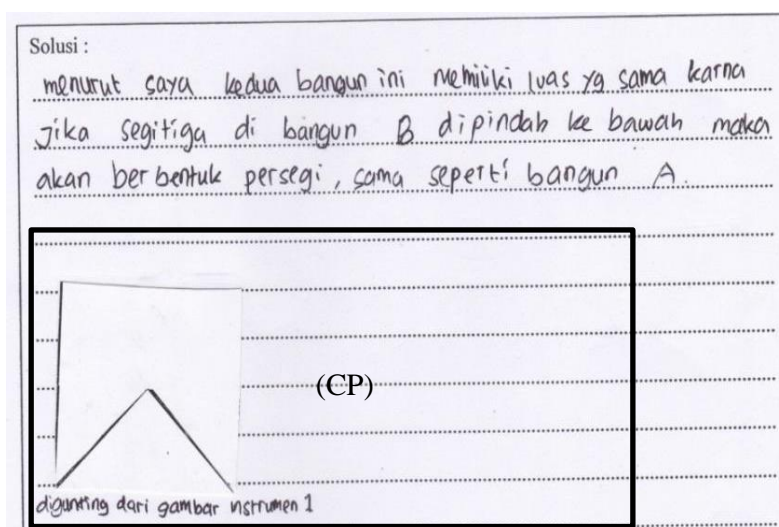 Solusi :
menurut saya kedua bangun ini memiliki luas yg sama karna
jika segitiga di bangun B dipindah ke bawah maka
akan berbentuk persegi, sama seperti bangun A.
(CP)
digunting dari gambar instrumen 1